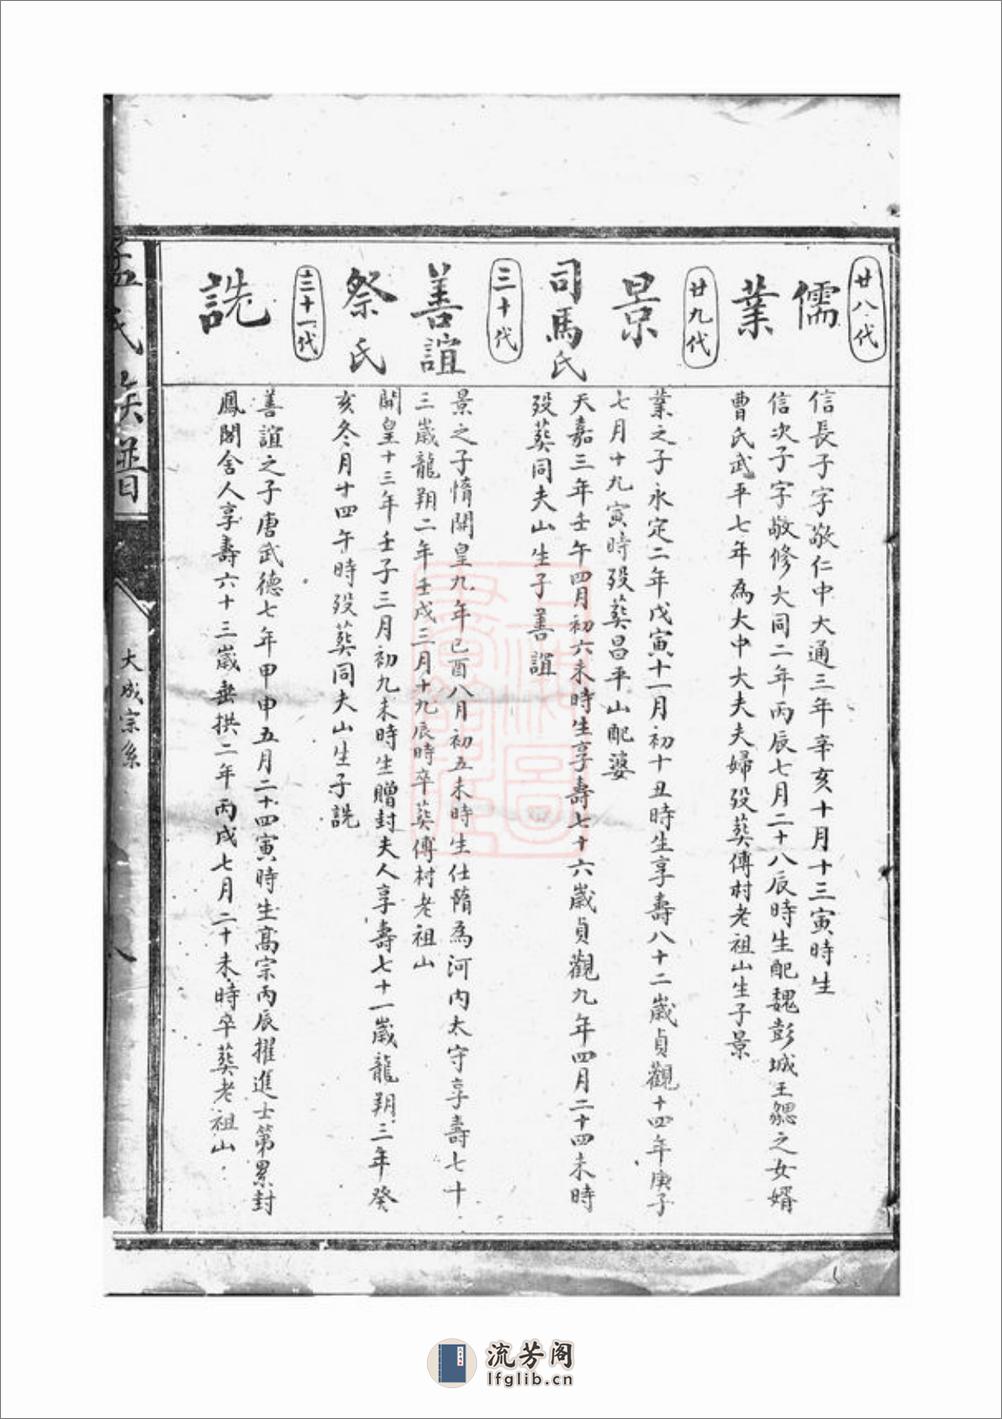 廿八代
儒
信長子字敬仁中大通三年辛亥十月十三寅時生
業
信次子字敬修大同二年丙辰七月二十八辰時生配魏彭城王勰之女婿
曹氏武平七年為大中大夫夫婦歿葬傅村老祖山生子景
廿九代
景
業之子永定二年戊寅十一月初十丑時生享壽八十二歲貞觀十四年庚子
七月十九寅時歿葬昌平山配婆
司馬氏
天嘉三年壬午四月初六未時生享壽七十六歲貞觀九年四月二十四未時
歿葬同夫山生子善誼
三十代
善誼
景之子惰開皇九年己酉八月初五未時生仕隋為河內太守享壽七十
三歲龍朔二年壬戌三月十九辰時卒葬傅村老祖山
祭氏
開皇十三年壬子三月初九未時生贈封夫人享壽七十一歲龍朔三年癸
亥冬月十四午時歿葬同夫山生子詵
三十一代
詵
善誼之子唐武德七年甲申五月二十四寅時生高宗丙辰擢進士第累封
鳳閣舍人享壽六十三歲垂拱二年丙戌七月二十未時卒葬老祖山
孟氏族譜
大成宗系
八
流芳阁
lfglib.cn